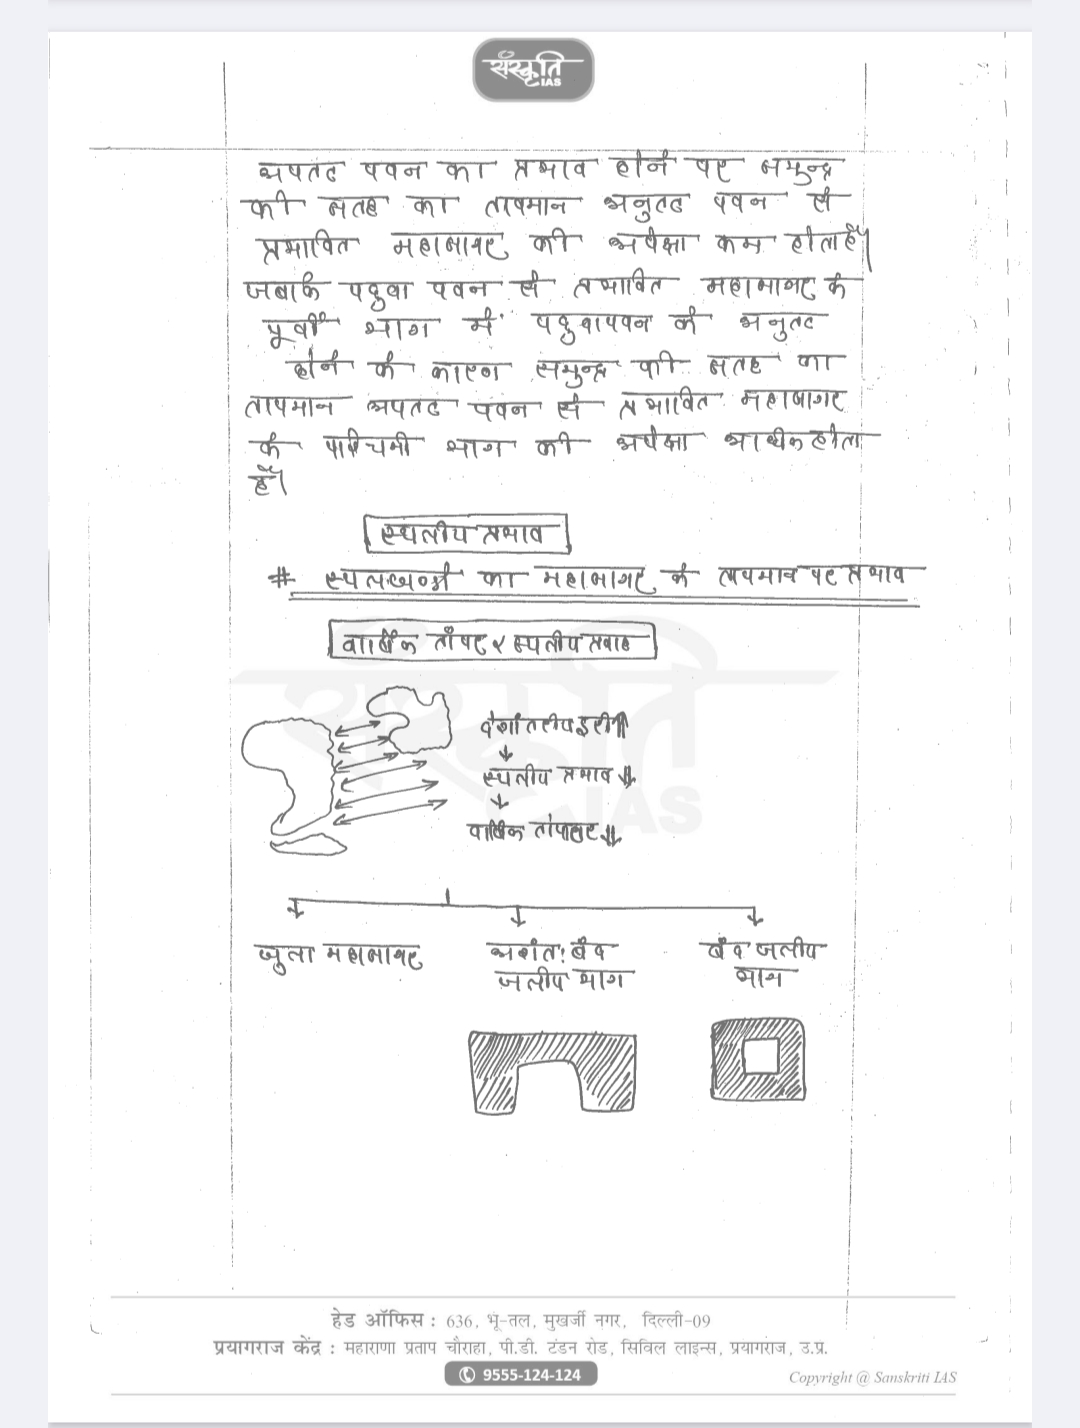 संस्कृति
IAS
अपतट पवन का प्रभाव होने पर समुन्द्र
की सतह का तापमान अनुतट पवन से
प्रभावित महासागर की अपेक्षा कम होता है।
जबकि पछुवा पवन से प्रभावित महासागर के
पूर्वी भाग में पछुवापवन के अनुतट
होने के कारण समुन्द्र की सतह का
तापमान अपतट पवन से प्रभावित महासागर
के पश्चिमी भाग की अपेक्षा अधिक होता
है।
स्थलीय प्रभाव
# स्थलखण्डों का महासागर के तापमान पर प्रभाव
वार्षिक तापांतर स्थलीय प्रभाव
देशांतरीय दूरी ⇑
↓
स्थलीय प्रभाव ⇓
↓
वार्षिक तापांतर ⇓
खुला महासागर
अशंत: बंद
जलीय भाग
बंद जलीय
भाग
संस्कृति
IAS
हेड ऑफिस : 636, भू-तल, मुखर्जी नगर, दिल्ली-09
प्रयागराज केंद्र : महाराणा प्रताप चौराहा, पी.डी. टंडन रोड, सिविल लाइन्स, प्रयागराज, उ.प्र.
9555-124-124
Copyright @ Sanskriti IAS